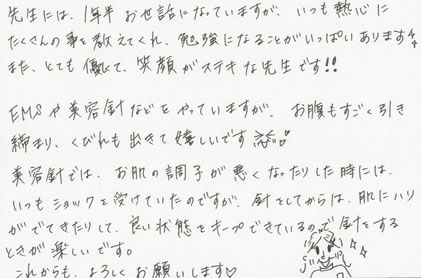 先生には、1年半お世話になっていますが、いつも熱心に
たくさんの事を教えてくれ、勉強になることがいっぱいあります
また、とても優しくて、笑顔がステキな先生です!!
EMSや美容針などをやっていますが、お腹もすごく引き
締まり、くびれも出きて嬉しいです
美容針では、お肌の調子が悪くなったりした時には、
いつもショックを受けていたのですが、針をしてからは、肌にハリ
がでてきたりして、良い状態をキープできているので針をする
ときが楽しいです。
これからも、よろしくお願いします♡